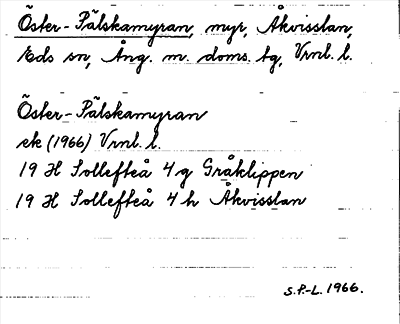 Öster-Pälskamyran, myr, Åkvisslan,
Eds sn, Ång. m. doms. tg, Vrnl. l.
Öster-Pälskamyran
ek (1966) Vrnl. l.
19 H Sollefteå 4 g Gråklippen
19 H Sollefteå 4 h Åkvisslan
S.P.-L. 1966.